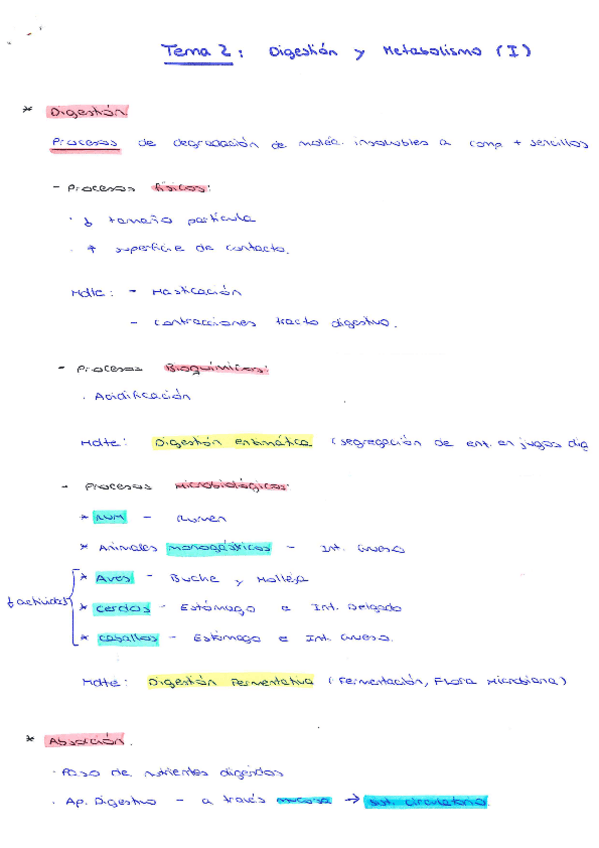 Tema 2: Digestión y Metabolismo (I)
* Digestión
Procesos de degradación de moléc. insolubles a comp + sencillos
- Procesos físicos:
· ↓ tamaño partícula
· ↑ superficie de contacto.
Mdte: - Masticación
- Contracciones tracto digestivo.
- Procesos Bioquímicos:
· Acidificación
Mdte: Digestión enzimática (segregación de enz. en jugos dig
- Procesos Microbiológicos:
* RUM - Rumen
* Animales monogástricos - Int. Grueso
* Aves - Buche y Molleja
↓ actividad * Cerdos - Estómago e Int. Delgado
* Caballos - Estómago e Int. Grueso.
Mdte: Digestión Fermentativa (Fermentación, Flora Microbiana)
* Absorción.
· Paso de nutrientes digeridos
· Ap. Digestivo - a través mucosa → sist. circulatorio.